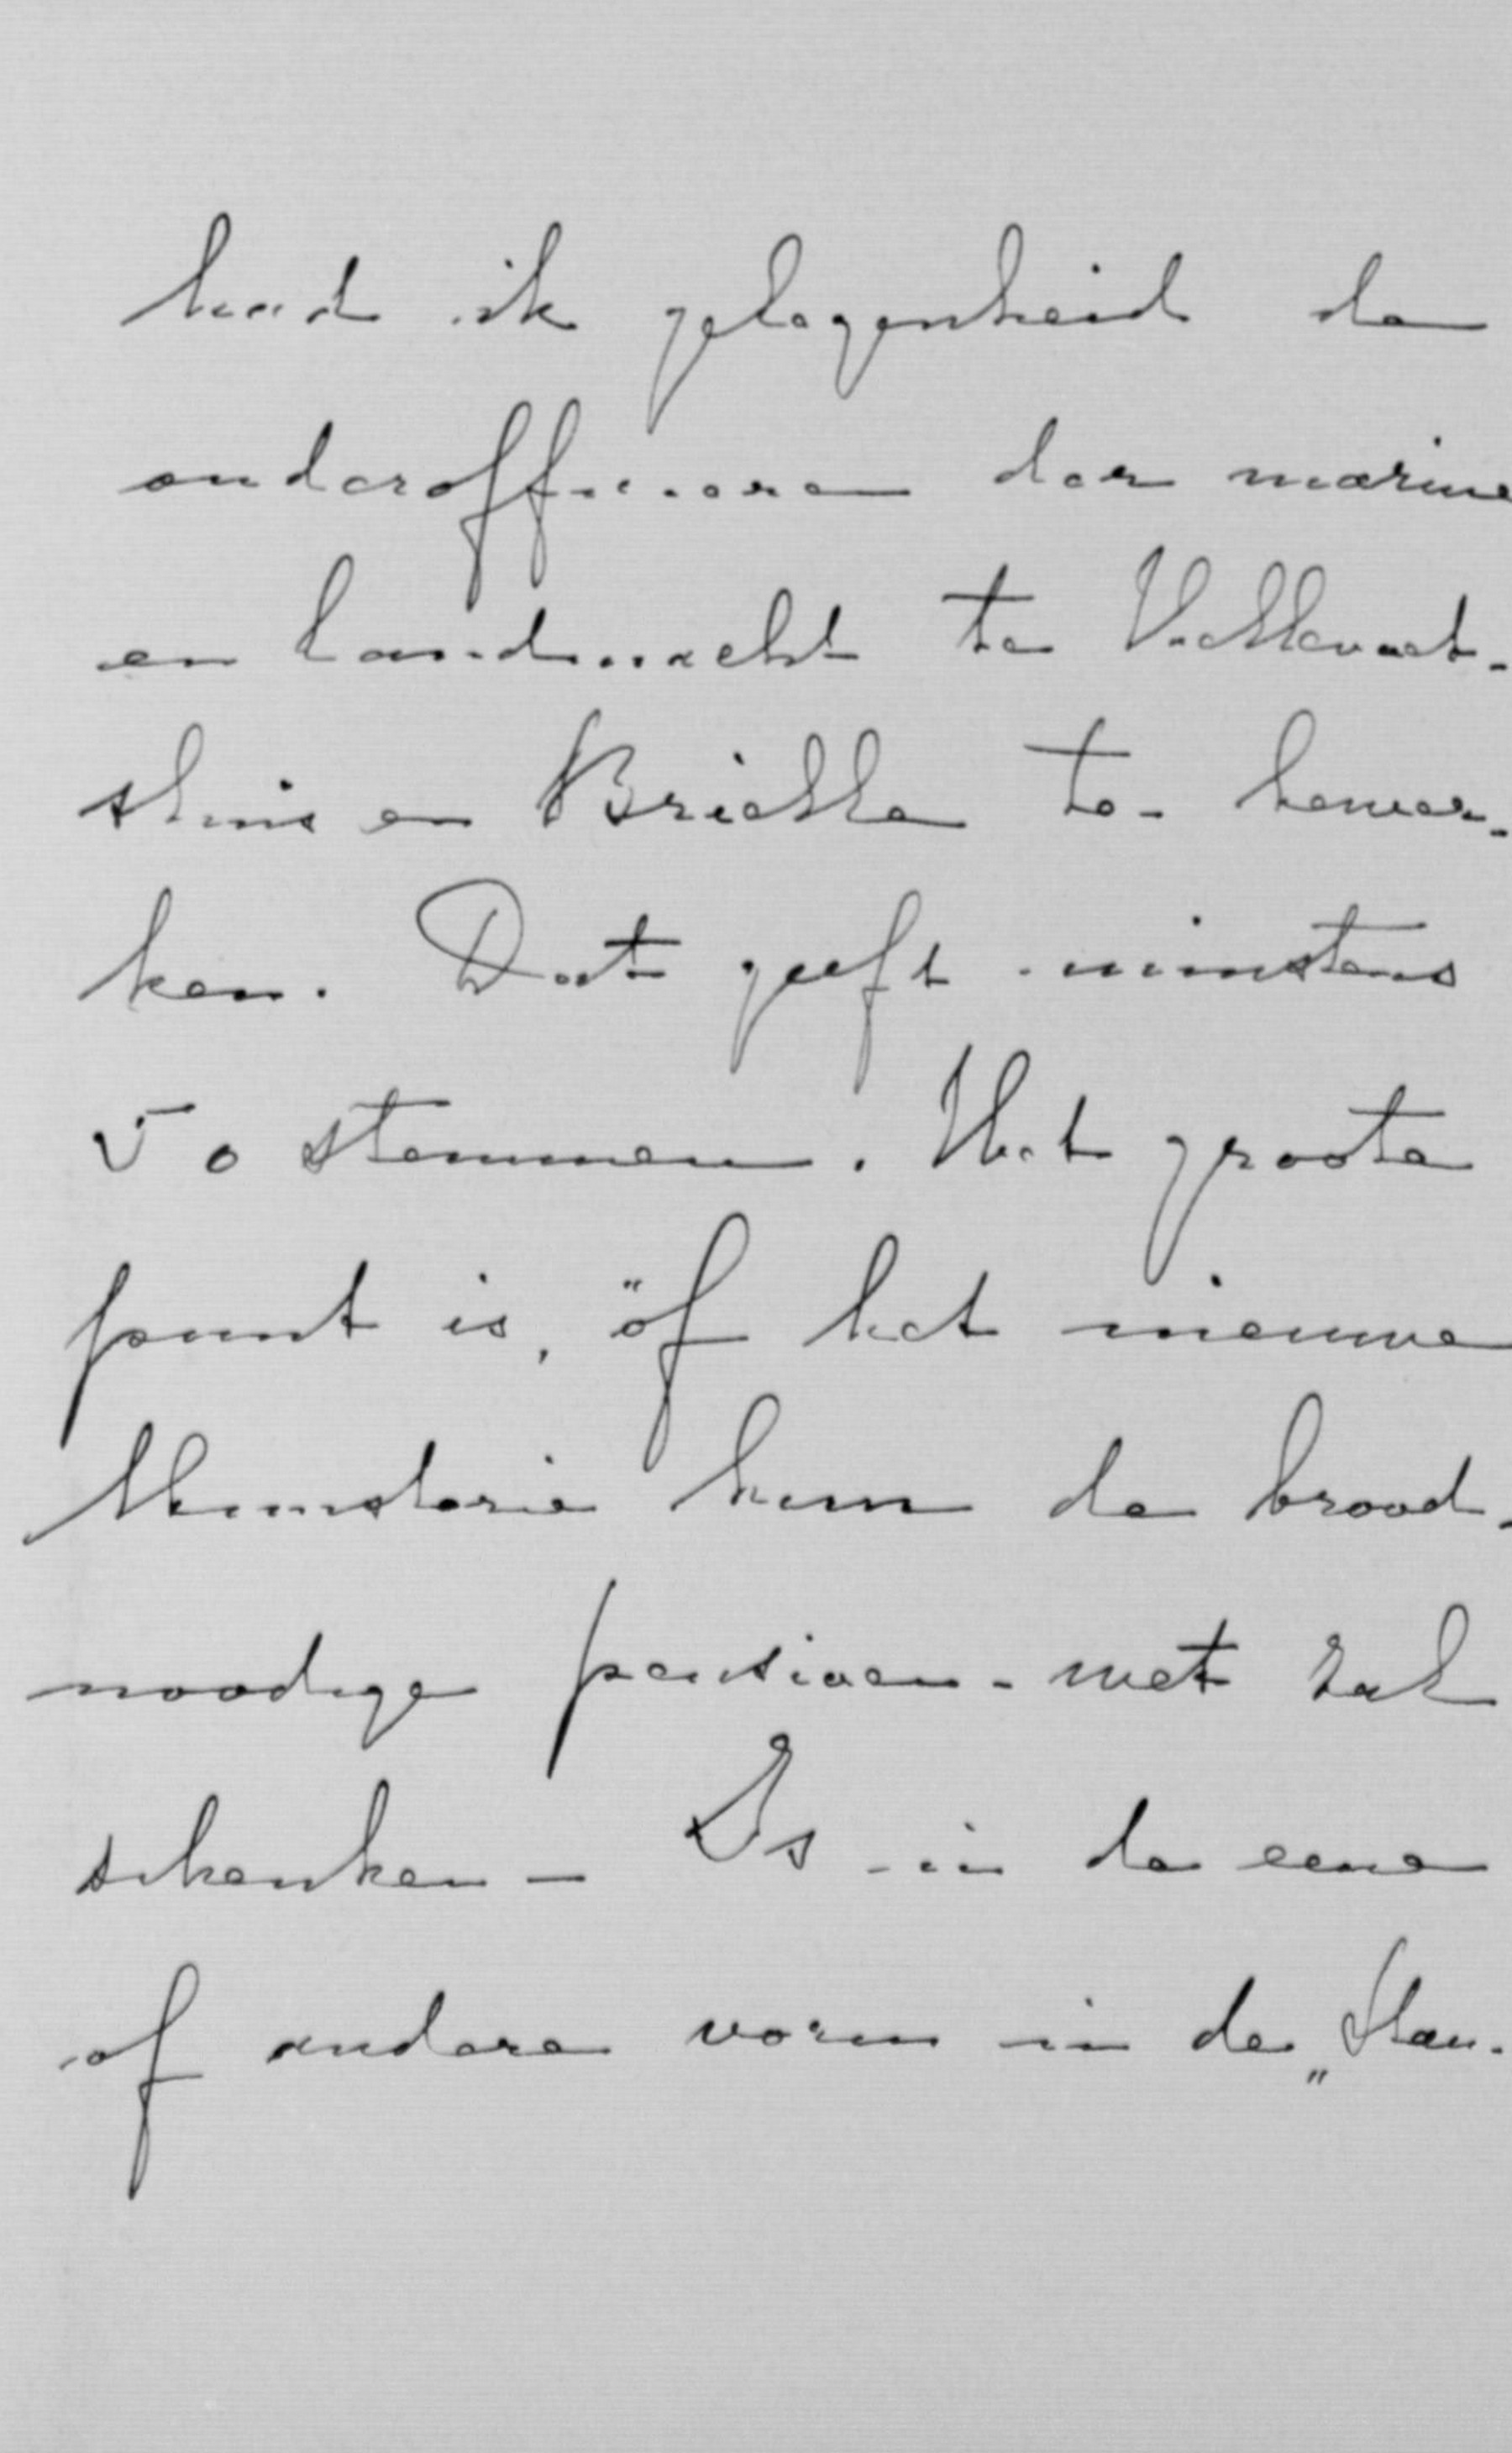 had ik gelegenheid de
onderofficieren der marine
en landmacht te Hellevoet-
sluis en Brielle te bewer-
ken. Dat geeft minstens
50 stemmen. Het groote
punt is, öf het nieuwe
Ministerie hun de brood-
noodige pensioen-wet zal
schenken – Is in de eene
of andere vorm in de „Stan-